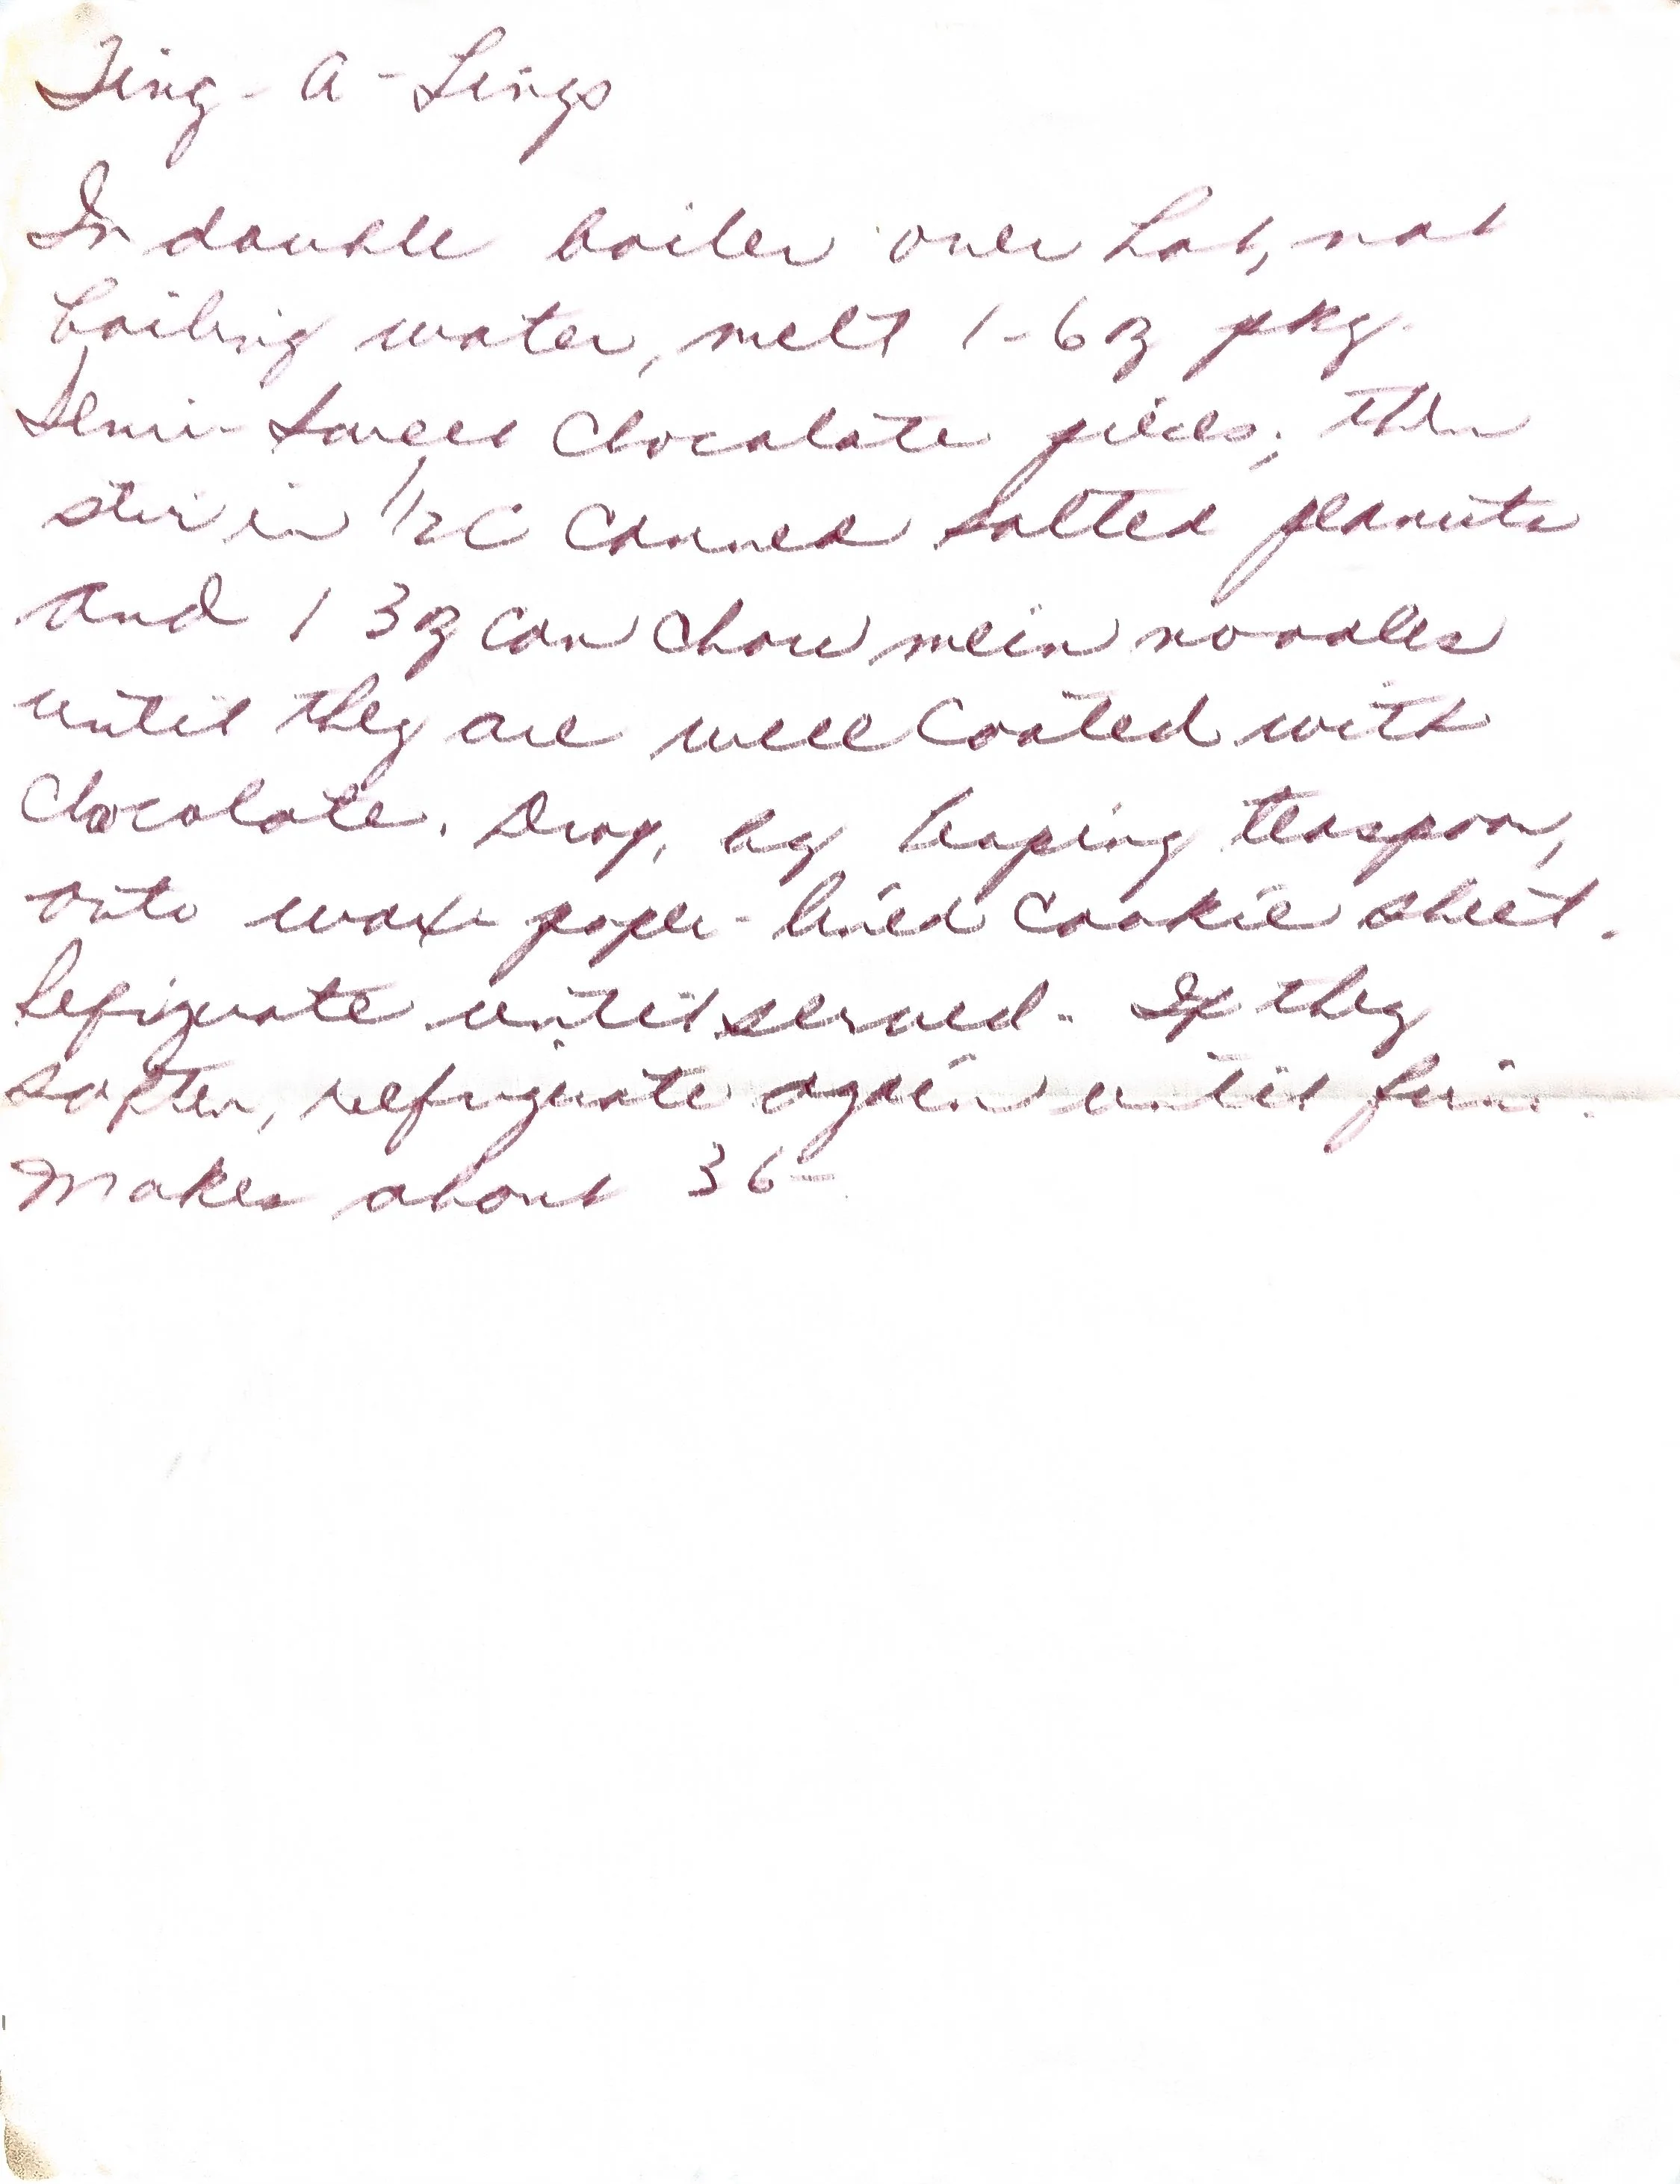 Ting-A-Lings
In double boiler over hot, not
boiling water, melt 1-6 oz pkg.
Semi-Sweet Chocolate pieces; then
stir in 1/2 C Canned Salted peanuts
and 1 3 oz Can Chow mein noodles
until they are well Coated with
Chocolate. Drop, by heaping teaspoon,
onto wax paper-lined Cookie sheet.
Refrigerate until served. If they
soften, refrigerate again until firm.
Makes about 36-